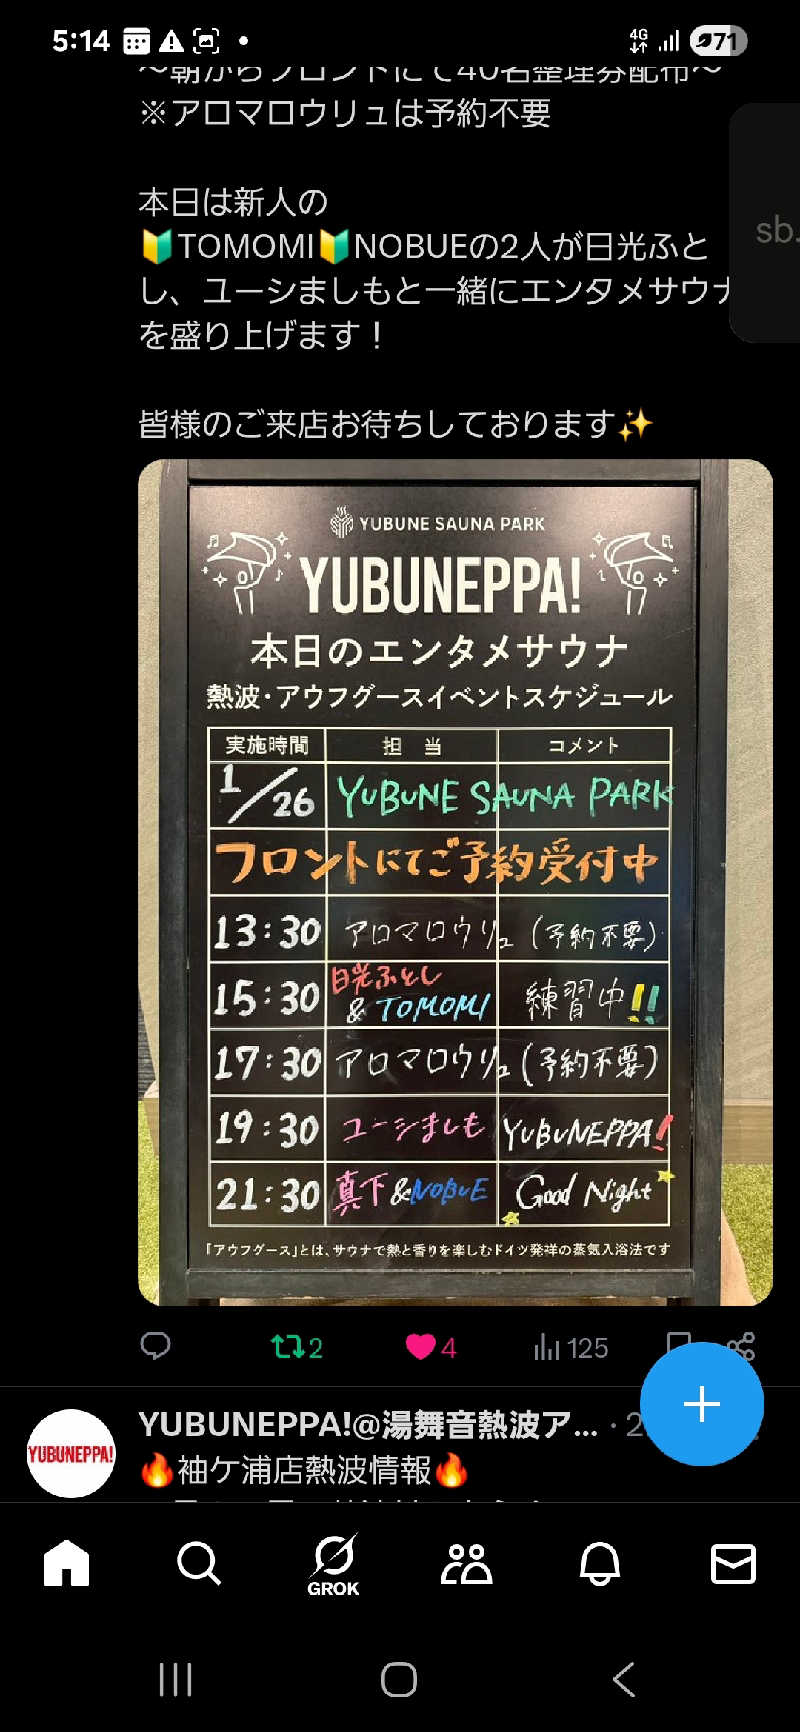 5:14
4G
71
～朝からフロントにて40名整理券配布～
※アロマロウリュは予約不要
本日は新人の
🔰TOMOMI🔰NOBUEの2人が日光ふと
し、ユーシましもと一緒にエンタメサウナ
を盛り上げます！
sb.
皆様のご来店お待ちしております✨
YUBUNE SAUNA PARK
YUBUNEPPA!
本日のエンタメサウナ
熱波・アウフグースイベントスケジュール
実施時間 担 当 コメント
1/26 YUBUNE SAUNA PARK
フロントにてご予約受付中
13:30 アロマロウリュ (予約不要)
15:30 日光ふとし & TOMOMI 練習中!!
17:30 アロマロウリュ (予約不要)
19:30 ユーシましも YUBUNEPPA!
21:30 真下&NOBUE Good Night
「アウフグース」とは、サウナで熱と香りを楽しむドイツ発祥の蒸気入浴法です
2 4 125
YUBUNEPPA!@湯舞音熱波ア... · 2
YUBUNEPPA!
🔥袖ケ浦店熱波情報🔥
GROK